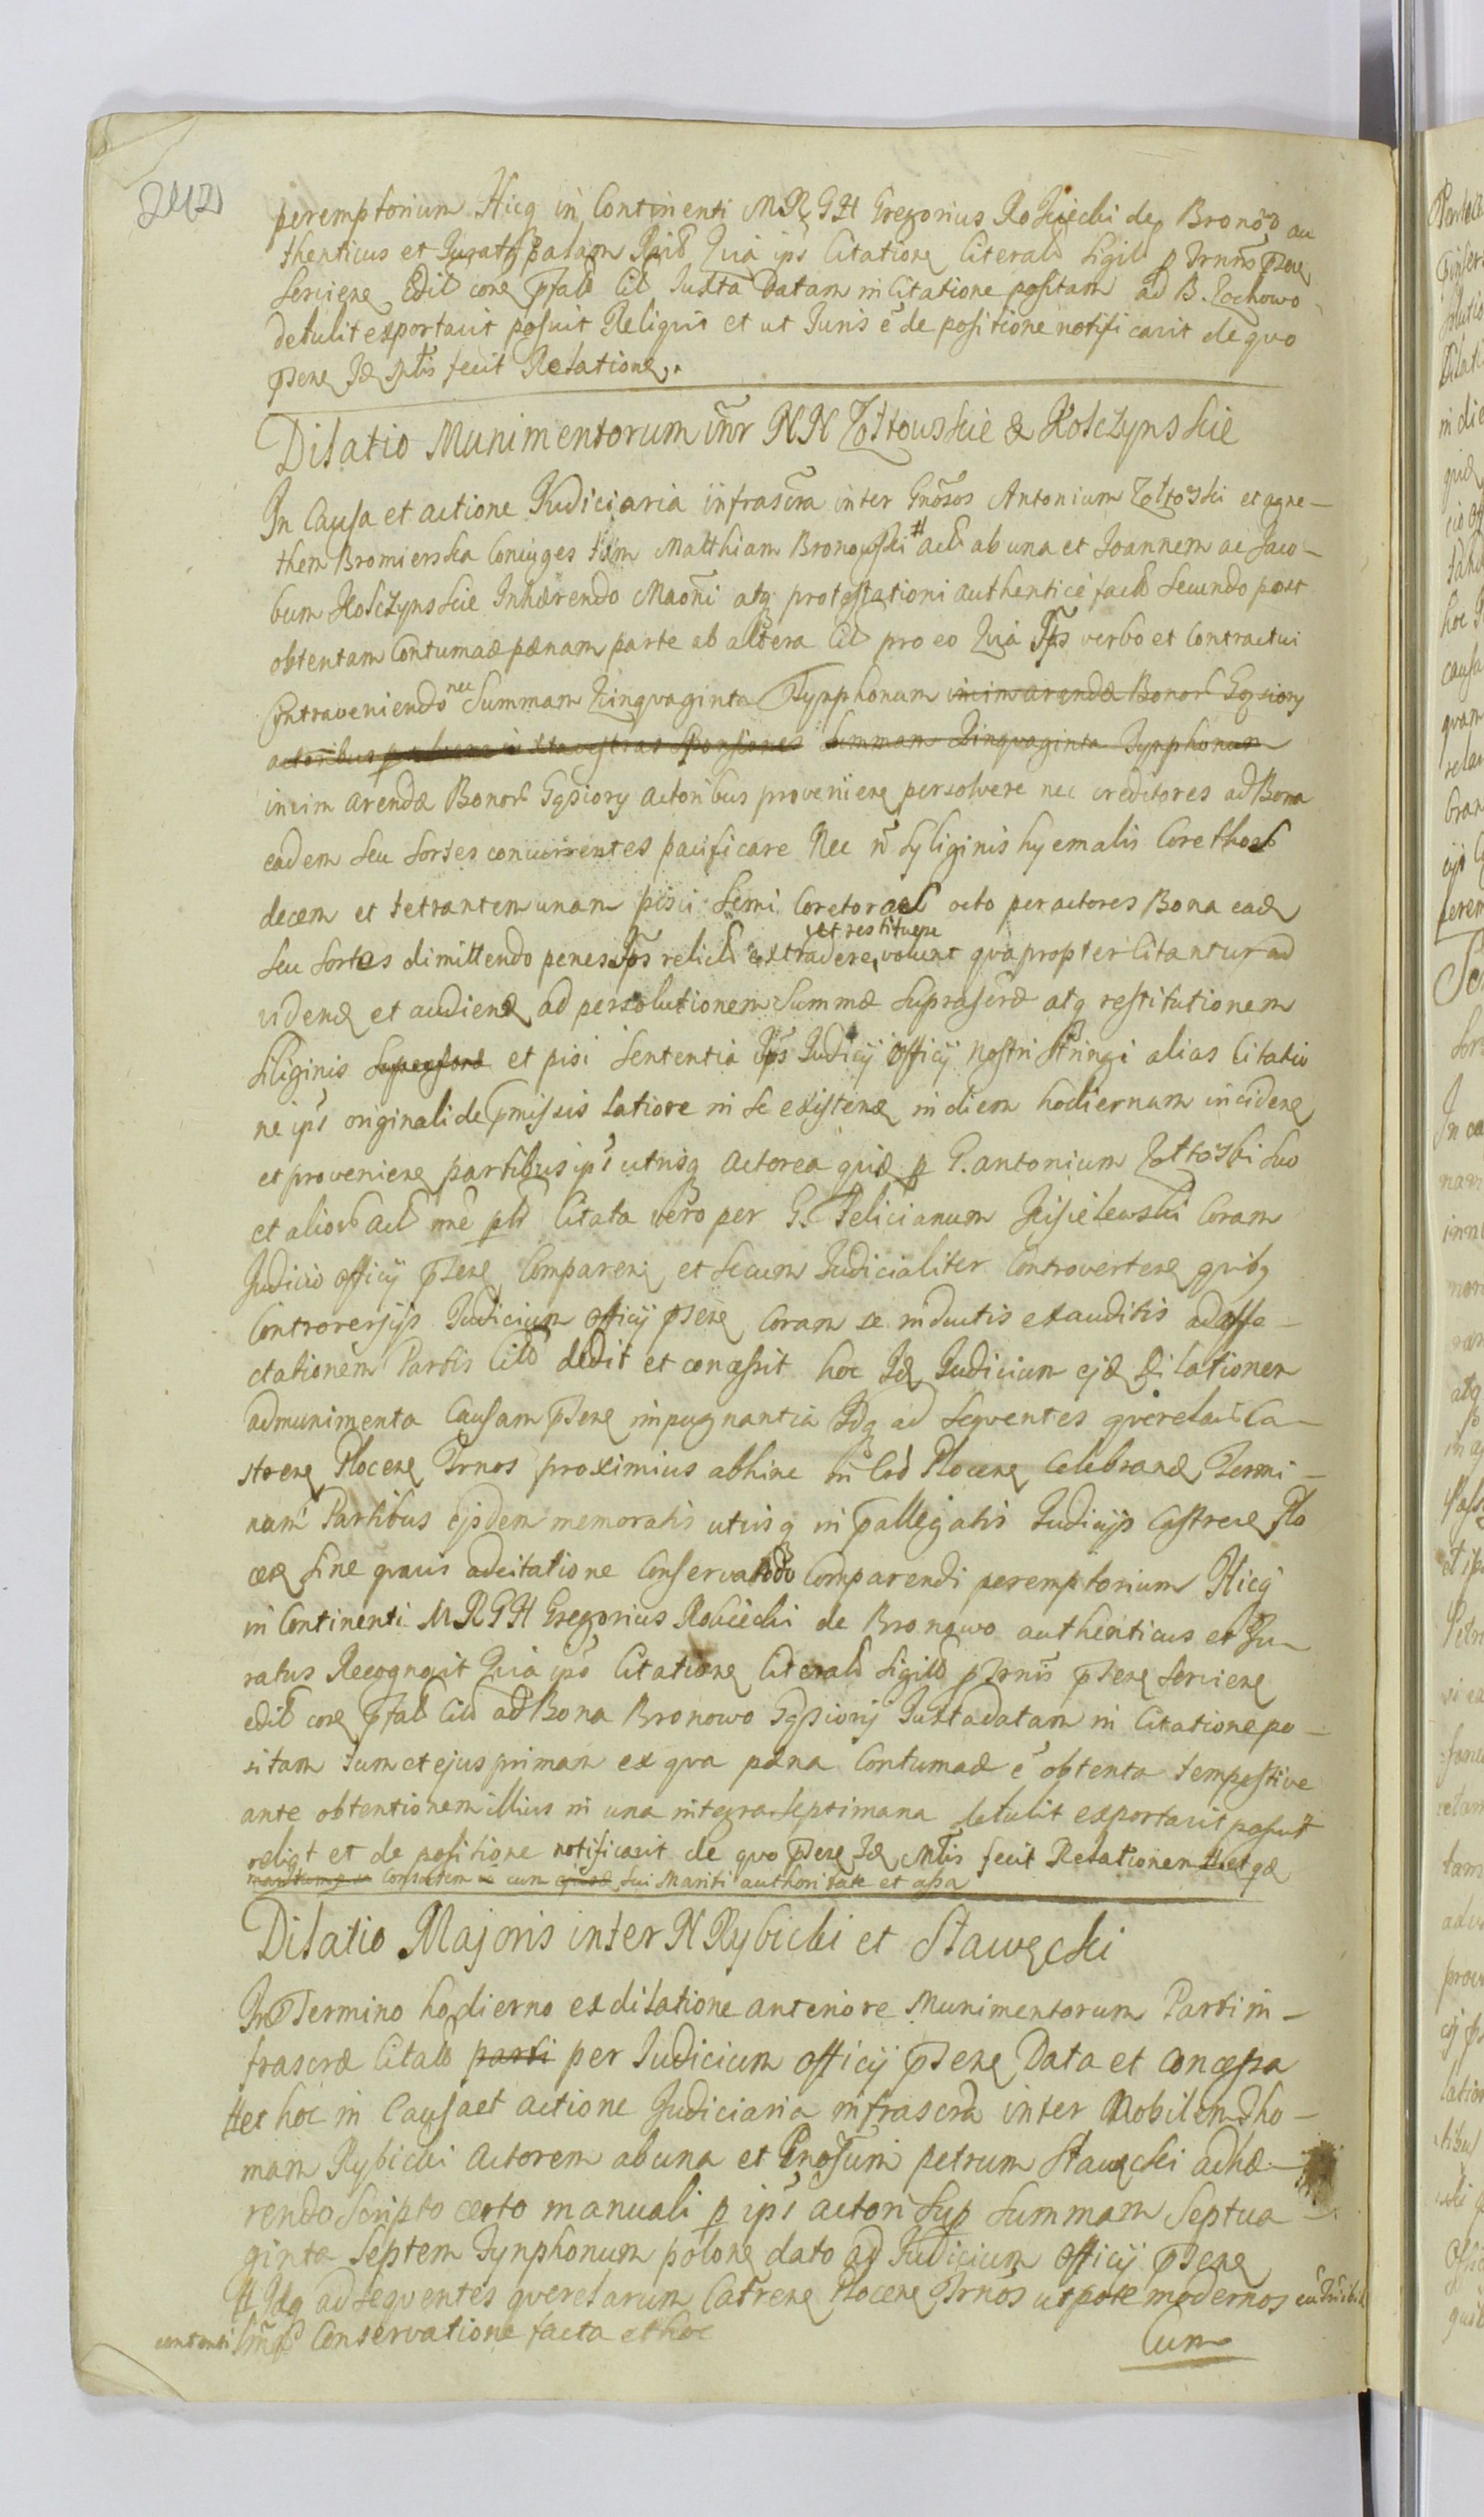 242
peremptorium Hicq in Continenti MRGH Gregorius Rościecki de Bronowo au
thenticus et Juratq palam Quia ips Citatione Literali Sigil p Trnis pnte
Serviene Edit core pfat Cit Juxta Datam in Citatione positam ad B. Zochowo
detulit exportavit posuit Reliquit et ut Juris e de positione notificavit de quo
pnte Id Mtis fecit Relatione.
Dilatio Munimentorum inr NN Zołtowskie & Kosczynskie
In Causa et actione Judiciaria infrascra inter Gnosos Antonium Zołtoski et agne-
them Bromierska Coniuges tum Matthiam Bronowski # act ab una et Joannem ac Jaco-
bum Kosczynskie Inhærendo Maoni atq protestationi authenticè fact Secundo post
obtentam Contumaæ pænam parte ab altera Cit pro eo Quia Ips verbo et Contractui
Contraveniendo nec Summam Quinquaginta Tynphonum incim arendæ Bonor Gąsiory
actoribus Summam Quinquaginta Tynphonum
incim arendæ Bonor Gąsiory actoribus proveniene persolvere nec creditores ad Bona
eadem seu Sortes concurrentes pacificare Nec n Syliginis hyemalis Corethos
decem et tetrantem unam pisi Semi Coretoras octo per actores Bona ead
et restituere
seu Sortes dimittendo penes Ips relict extradere volunt quapropter Citantur ad
videne et audiene ad persolutionem Summæ Suprascræ atq restitutionem
siliginis et pisi Sententia Ips Judicij Officij nostri Stringi alias Citatio
ne ips originali de pmissis latiore in se existene in diem hodiernam incidene
et proveniene partibus ips utrisq Actorea quid p G. Antonium Zołtoski suo
et alior act nne plr Citata vero per G. Felicianum Kisielewski Coram
Judicio officij pnte Comparen et Secum Judicialiter Controvertene quibq
Controversijs Judicium Officij pnte Coram se inductis exauditis ad affe-
ctationem Partis Cit dedit et concessit hoc Id Judicium ejd dilationem
ad munimenta Causam pnte impugnantia Idq ad Sequentes querelar Ca-
strene Plocene Trnos proximius abhinc in Cas Plocene Celebrand Termi-
num Partibus ejsdem memoratis utrisq in pallegatis Judicijs Castrene Plo
cene sine quavis adcitatione Conservatodo Comparendi peremptorium Hicq
in Continenti MRGH Gregorius Rościecki de Bronowo authenticus et Ju-
ratus Recognovit Quia ips Citatione Literali Sigillo p Trnis pnte Serviene
edit core pfat Cit ad Bona Bronowo Gąsiory Juxta datam in Citatione po-
sitam tum et ejus primam ex qua pæna Contumaæ e obtenta tempestive
ante obtentionem illius in una integra Septimana detulit exportavit posuit
reliqt et de positione notificavit de quo pnte Id Mtis fecit Relationem # et qd
Consortem cum sui Mariti authoritate et assa
Dilatio Majoris inter N Rybicki et Stawęcki
In Termino hodierno ex dilatione anteriore Munimentorum Parti in-
frascræ Citato parti per Judicium officij pnte Data et concessa
# et hoc in Causa et actione Judiciaria infrascra inter Nobilem Tho-
mam Rybicki Actorem ab una et Gnosum petrum Stawęcki adhæ-
rendo Scripto certo manuali p ips actori sup summam Septua
ginta Septem Tynphonum polone dato ad Judicium Officij pnte
# Idq ad Sequentes querelarum Castrene Plocene Trnos utpote modernos
Conservatione facta et hoc
Cum